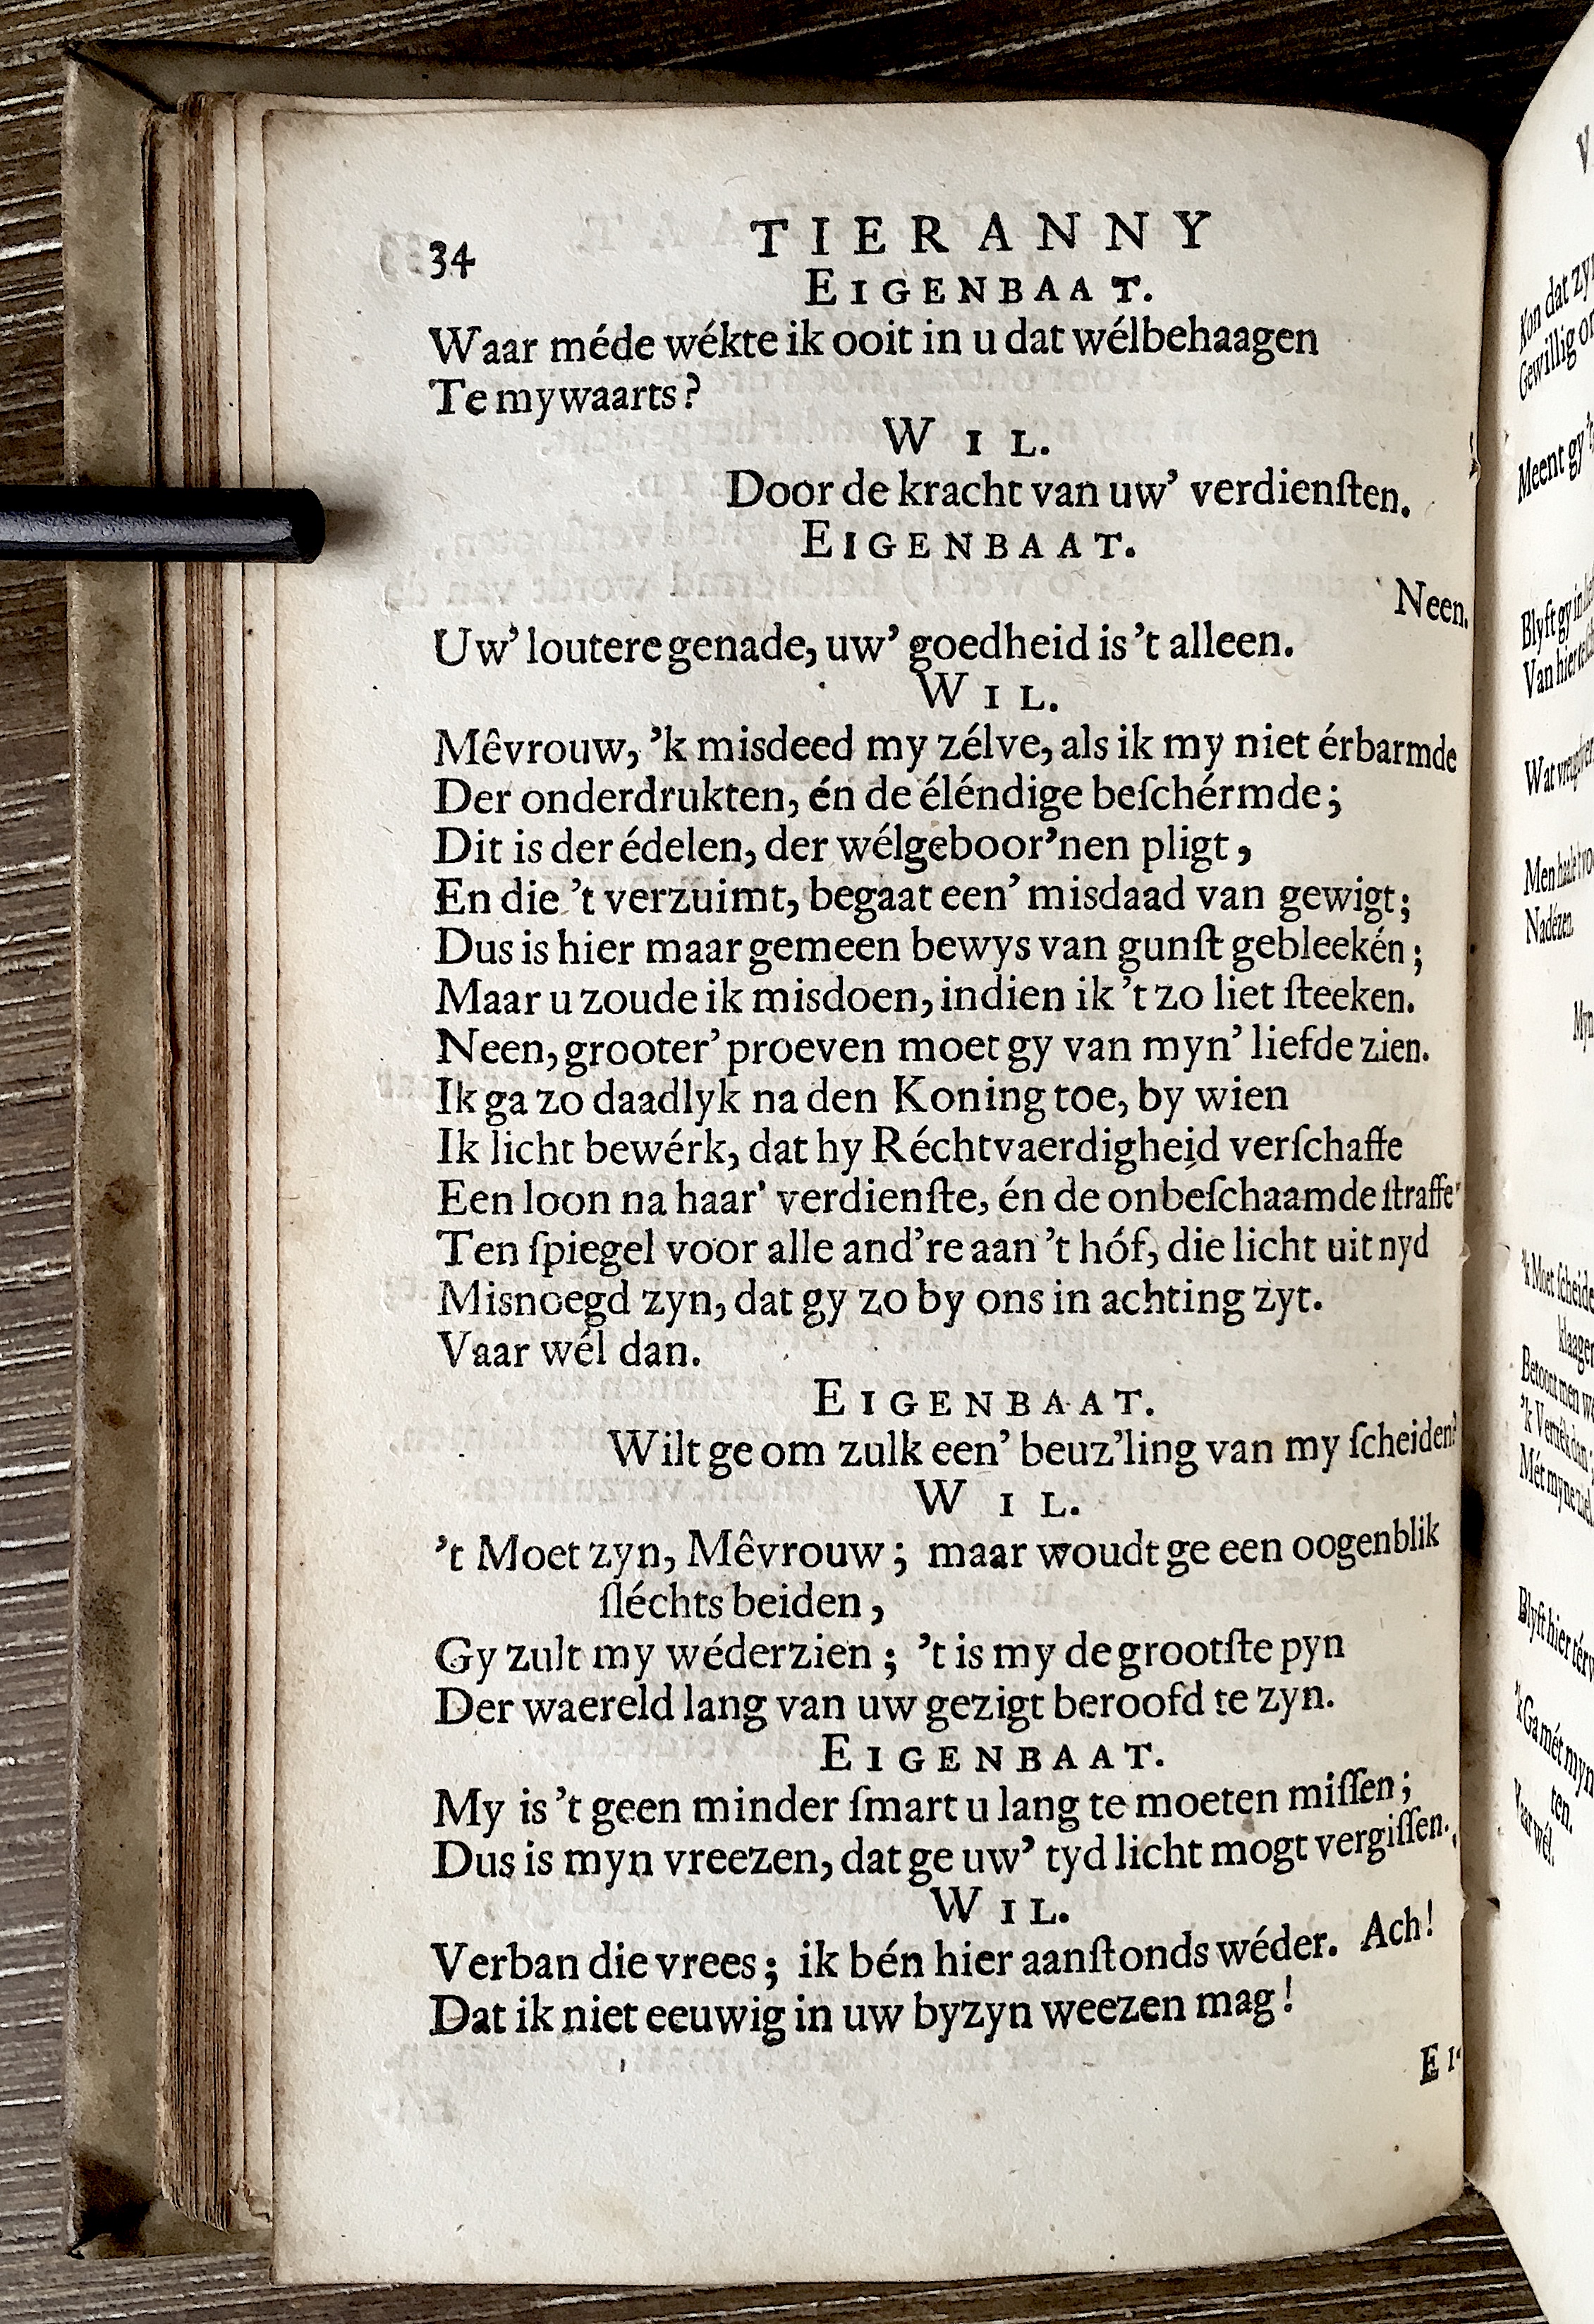 34 TIERANNY
EIGENBAAT.
Waar méde wékte ik ooit in u dat wélbehaagen
Te mywaarts?
WIL.
Door de kracht van uw’ verdienſten.
EIGENBAAT.
Neen.
Uw’ loutere genade, uw’ goedheid is ’t alleen.
WIL.
Mêvrouw, ’k misdeed my zélve, als ik my niet érbarmde
Der onderdrukten, én de éléndige beſchérmde;
Dit is der édelen, der wélgeboor’nen pligt,
En die ’t verzuimt, begaat een’ misdaad van gewigt;
Dus is hier maar gemeen bewys van gunſt gebleekén;
Maar u zoude ik misdoen, indien ik ’t zo liet ſteeken.
Neen, grooter’ proeven moet gy van myn’ liefde zien.
Ik ga zo daadlyk na den Koning toe, by wien
Ik licht bewérk, dat hy Réchtvaerdigheid verſchaffe
Een loon na haar’ verdienſte, én de onbeſchaamde ſtraffe
Ten ſpiegel voor alle and’re aan ’t hóf, die licht uit nyd
Misnoegd zyn, dat gy zo by ons in achting zyt.
Vaar wél dan.
EIGENBAAT.
Wilt ge om zulk een’ beuz’ling van my ſcheiden?
WIL.
’t Moet zyn, Mêvrouw; maar woudt ge een oogenblik
ſléchts beiden,
Gy zult my wéderzien; ’t is my de grootſte pyn
Der waereld lang van uw gezigt beroofd te zyn.
EIGENBAAT.
My is ’t geen minder ſmart u lang te moeten miſſen;
Dus is myn vreezen, dat ge uw’ tyd licht mogt vergiſſen.
WIL.
Verban die vrees; ik bén hier aanſtonds wéder. Ach!
Dat ik niet eeuwig in uw byzyn weezen mag!
EI-
Kon dat
Gewillig
Meent gy
Blyft gy in
Van hier
Nadézen.
’k Moet
klaagen
Betoont men
Blyft hier
’k Ga mét myn
ten.
Vaar wél.